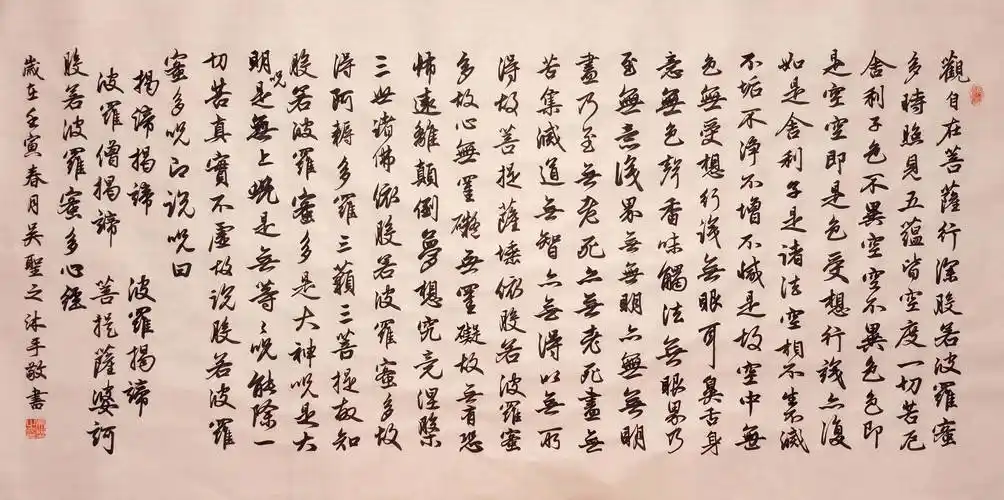 觀自在菩薩行深般若波羅蜜
多時照見五蘊皆空度一切苦厄
舍利子色不異空空不異色色即
是空空即是色受想行識亦復
如是舍利子是諸法空相不生滅
不垢不淨不增不減是故空中無
色無受想行識無眼耳鼻舌身
意無色聲香味觸法無眼界乃
至無意識界無無明亦無無明
盡乃至無老死亦無老死盡無
苦集滅道無智亦無得以無所
得故菩提薩埵依般若波羅蜜
多故心無罣礙無罣礙故無有恐
怖遠離顛倒夢想究竟涅槃
三世諸佛依般若波羅蜜多故
得阿耨多羅三藐三菩提故知
般若波羅蜜多是大神咒是大
明咒是無上咒是無等〻咒能除一
切苦真實不虛故說般若波羅
蜜多咒即說咒曰
揭諦揭諦 波羅揭諦
波羅僧揭諦 菩提薩婆訶
般若波羅蜜多心經
歲在壬寅春月吳聖之沐手敬書